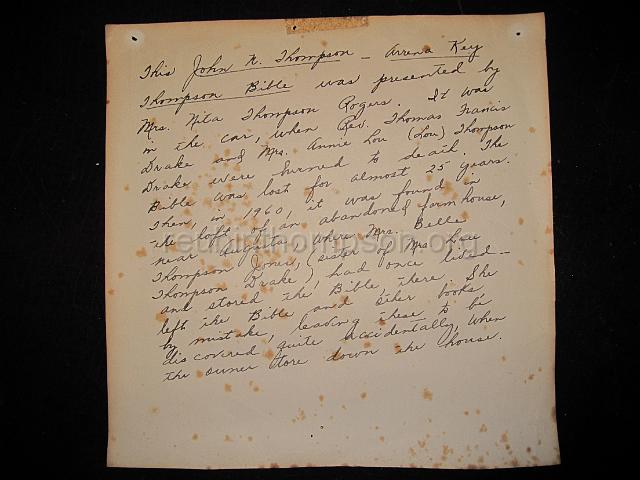 This John R. Thompson - Arrena Key
Thompson Bible was presented by
Mrs. Nita Thompson Rogers. It was
in the car, when Rev. Thomas Francis
Drake and Mrs. Annie Lou (Lou) Thompson
Drake were burned to death. The
Bible was lost for almost 25 years.
Then, in 1960, it was found in
the loft of an abandoned farm house,
near Augusta where Mrs. Belle
Thompson Jones, (sister of Mrs.
Thompson Drake), had once lived -
and stored the Bible, there. She
left the Bible and other books
by mistake, leaving these to be
discovered quite accidentally, when
the owner tore down the house.
thompson.org